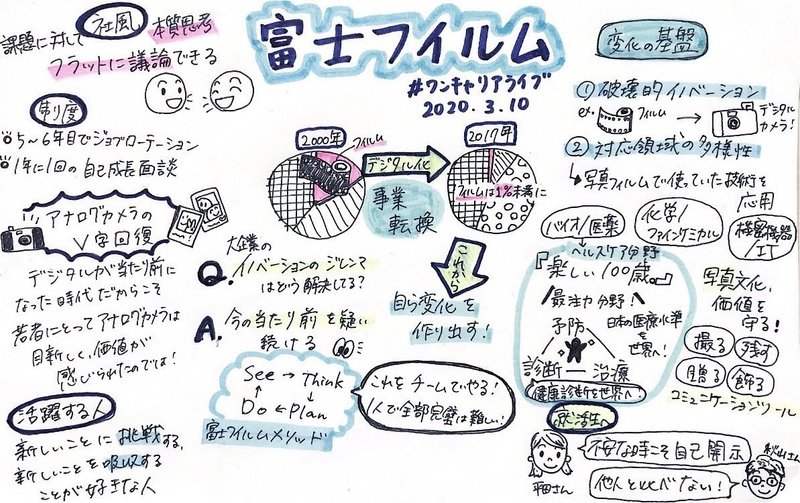 富士フイルム
#ワンキャリアライブ
2020.3.10
社風
本質思考
課題に対して
フラットに議論できる
制度
5~6年目でジョブローテーション
1年に1回の自己成長面談
アナログカメラの
V字回復
デジタルが当たり前に
なった時代だからこそ
若者にとってアナログカメラは
目新しく、価値が
感じられたのでは!
活躍する人
新しいことに挑戦する、
新しいことを吸収する
ことが好きな人
2000年
フィルム
デジタル化
2017年
フィルムは1%未満に
事業
転換
これから
自ら変化を
作り出す!
大企業の
Q. イノベーションのジレンマ
はどう解決してる?
A. 今の当たり前を疑い
続ける
See → Think
↑ ↓
Do ← Plan
富士フイルムメソッド
これをチームでやる!
1人で全部完璧は難しい!
変化の基盤
① 破壊的イノベーション
ex. フィルム → デジタル
カメラ!
② 対応領域の多様性
↳写真フィルムで使っていた技術を
応用
バイオ/医薬
化学/
ファインケミカル
機密機器
/IT
ヘルスケア分野
『楽しい100歳。』
最注力分野!
予防
診断 治療
日本の医療水準
を世界へ!
健康診断を世界へ!
写真文化、
価値を
守る!
撮る
残す
贈る
飾る
コミュニケーションツール
就活生へ
不安な時こそ自己開示
平田さん
他人と比べない!
秋山さん